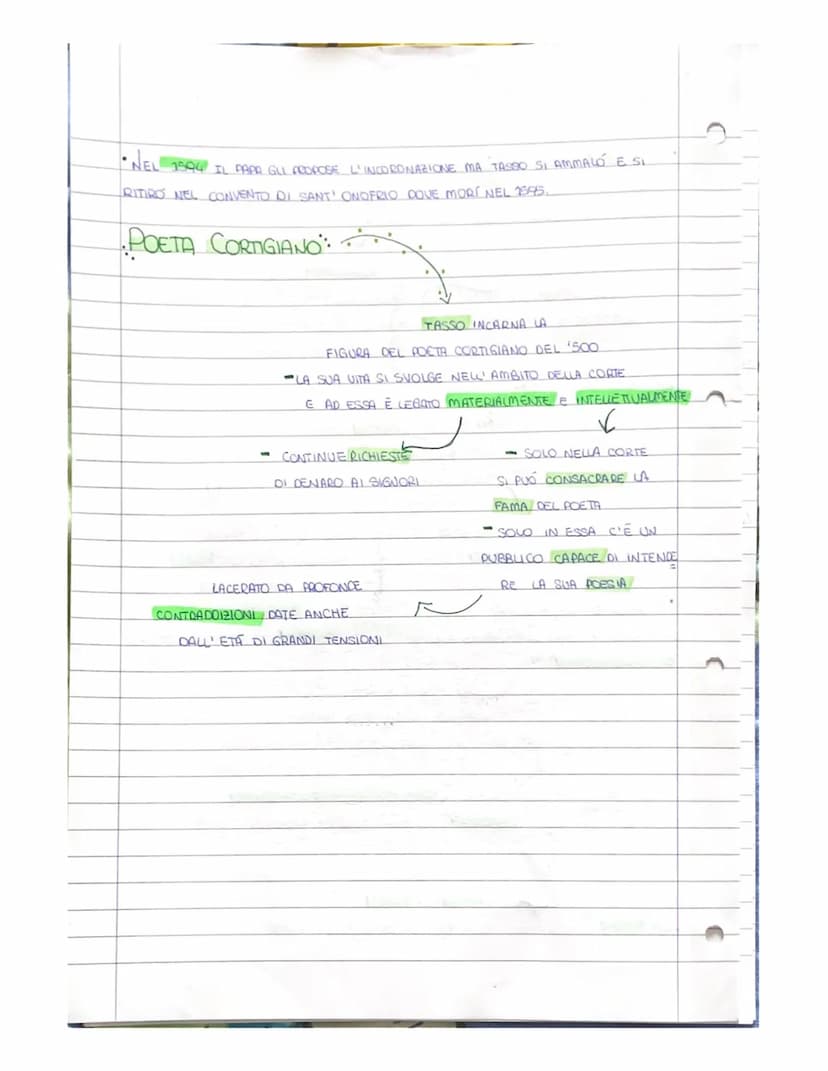 • NEL 1594 IL PAPA GLI PROPOSE L'INCORONAZIONE MA TASSO SI AMMALÓ E SI
RITIRÓ NEL CONVENTO DI SANT' ONOFRIO DOVE MORÍ NEL 1595.
POETA CORTIGIANO
TASSO INCARNA LA
FIGURA DEL POETA CORTIGIANO DEL '500
- LA SUA VITA SI SVOLGE NELL' AMBITO DELLA CORTE
E AD ESSA É LEGATO MATERIALMENTE E INTELLETTUALMENTE
- CONTINUE RICHIESTE
DI DENARO AI SIGNORI
- SOLO NELLA CORTE
SI PUÓ CONSACRARE LA
FAMA DEL POETA
- SOLO IN ESSA C'É UN
PUBBLICO CAPACE DI INTENDE
RE LA SUA POESIA
LACERATO DA PROFONDE
CONTRADDIZIONI DATE ANCHE
DALL' ETÁ DI GRANDI TENSIONI